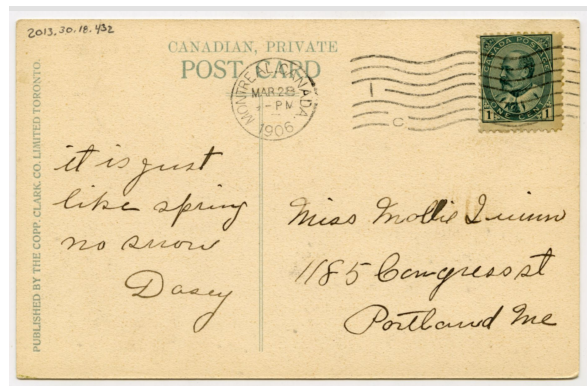 2013.30.18.432
CANADIAN, PRIVATE
POST CARD
MONTREAL, CANADA
MAR 28
PM
1906
1
C
CANADA POSTAGE
1 ONE CENT 1
PUBLISHED BY THE COPP. CLARK. CO. LIMITED TORONTO.
it is just
like spring
no snow
Dasey
Miss Mollie Quinn
1185 Congress st
Portland Me